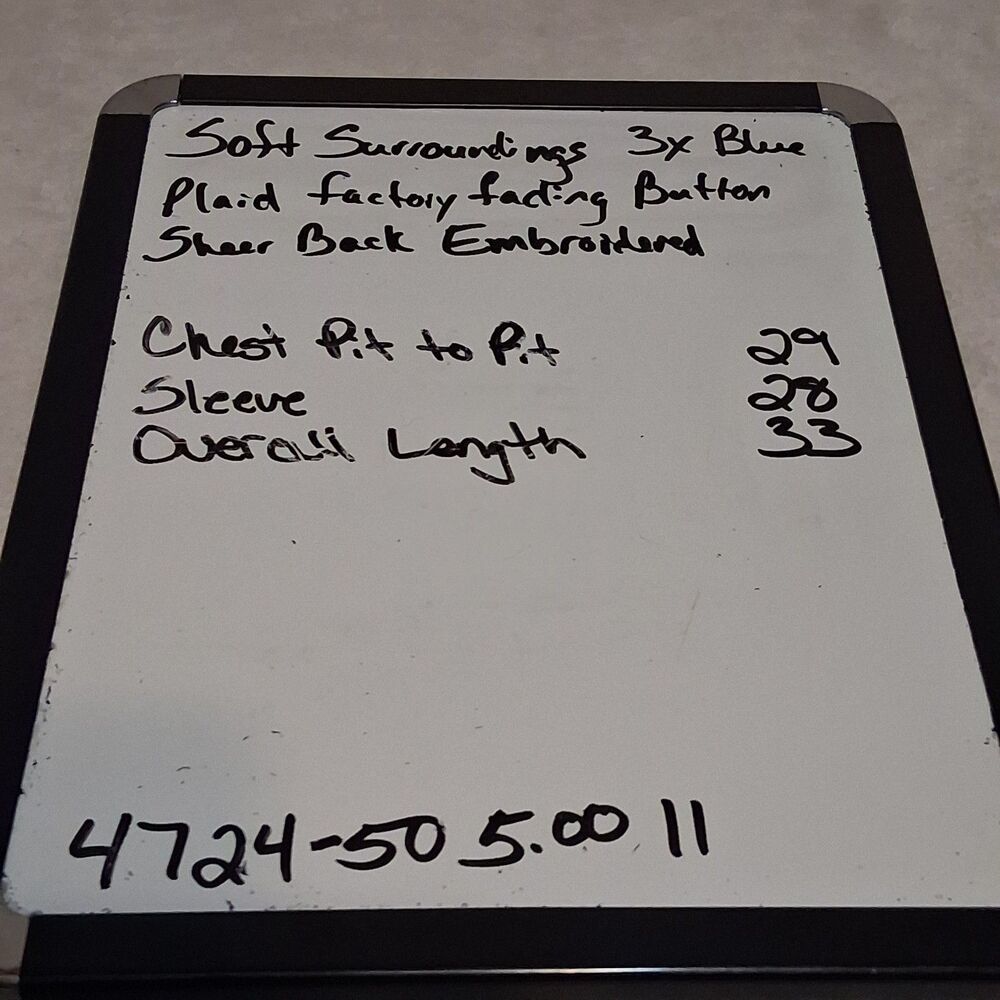 Soft Surroundings 3x Blue
Plaid factory fading Button
Sheer Back Embroidered
Chest Pit to Pit 29
Sleeve 28
Overall Length 33
4724-50 5.00 11